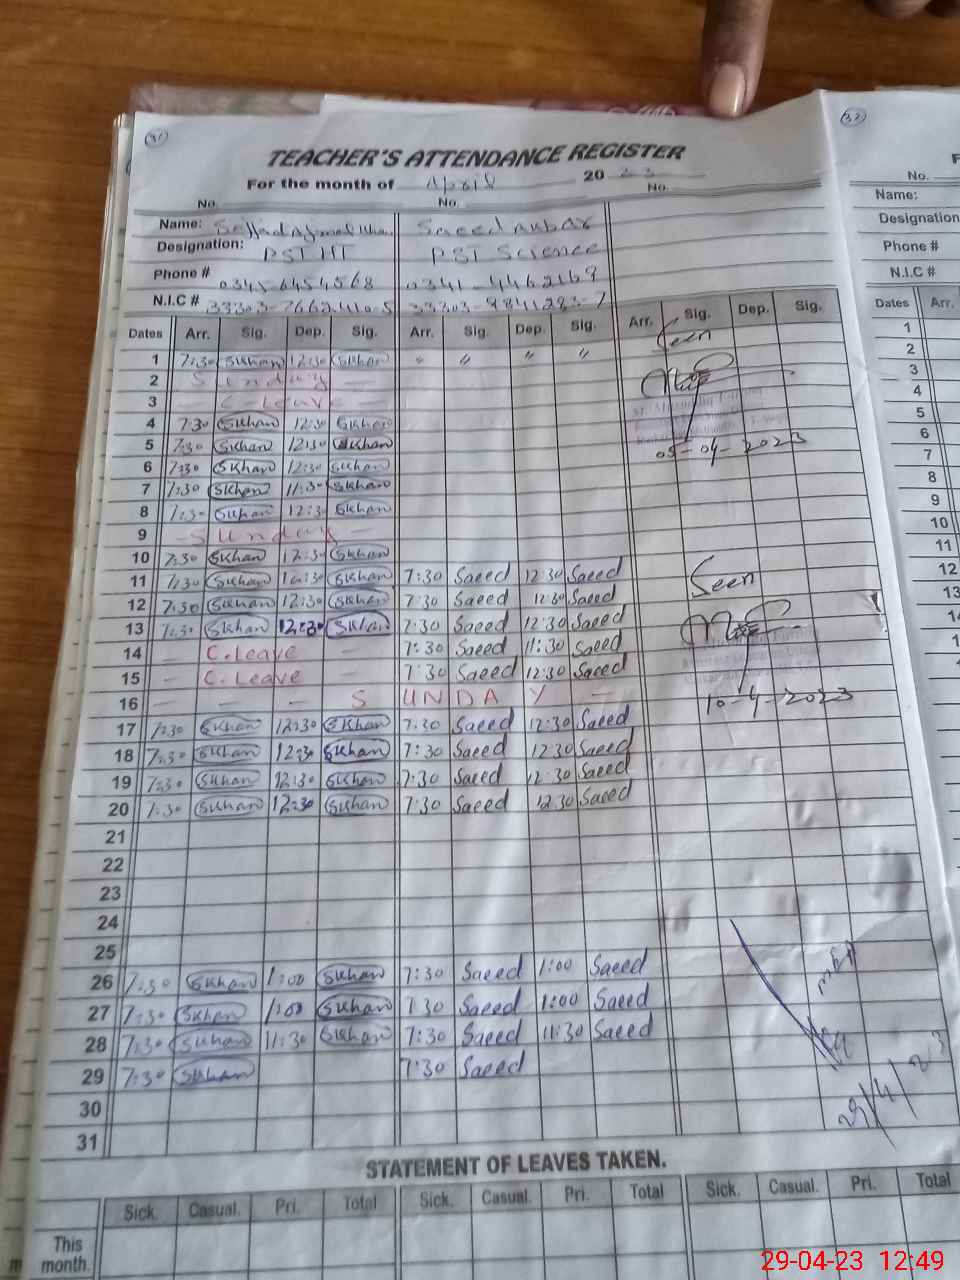 31
32
TEACHER'S ATTENDANCE REGISTER
For the month of April 2023
No. No. No.
Name: Sajjad Ajmal Khan Saeed Akbar
Designation: PST HT PST Science
Phone # 0345-6454568 0341-4462169
N.I.C #
Dates Arr. Sig. Dep. Sig. Arr. Sig. Dep. Sig. Arr. Sig. Dep. Sig.
Seen
1 7:30 SKhan 12:30 SKhan " " " "
2 Sunday
3 - C.Leave -
4 7:30 SKhan 12:30 SKhan
5 7:30 SKhan 12:30 SKhan
05-04-2023
6 7:30 SKhan 12:30 SKhan
7 7:30 SKhan 11:30 SKhan
8 7:30 SKhan 12:30 SKhan
9 - Sunday -
10 7:30 SKhan 12:30 SKhan
11 7:30 SKhan 12:30 SKhan 7:30 Saeed 12:30 Saeed
Seen
12 7:30 SKhan 12:30 SKhan 7:30 Saeed 12:30 Saeed
13 7:30 SKhan 12:30 SKhan 7:30 Saeed 12:30 Saeed
14 - C.Leave - 7:30 Saeed 11:30 Saeed
15 - C.Leave - 7:30 Saeed 12:30 Saeed
16 - - - SUNDAY -
10-4-2023
17 7:30 SKhan 12:30 SKhan 7:30 Saeed 12:30 Saeed
18 7:30 SKhan 12:30 SKhan 7:30 Saeed 12:30 Saeed
19 7:30 SKhan 12:30 SKhan 7:30 Saeed 12:30 Saeed
20 7:30 SKhan 12:30 SKhan 7:30 Saeed 12:30 Saeed
21
22
23
24
25
26 7:30 SKhan 1:00 SKhan 7:30 Saeed 1:00 Saeed
27 7:30 SKhan 1:00 SKhan 7:30 Saeed 1:00 Saeed
28 7:30 SKhan 11:30 SKhan 7:30 Saeed 11:30 Saeed
29 7:30 SKhan 7:30 Saeed
29/4/23
30
31
STATEMENT OF LEAVES TAKEN.
Sick. Casual. Pri. Total Sick. Casual. Pri. Total Sick. Casual. Pri. Total
This
month.
No.
Name:
Designation
Phone #
N.I.C #
Dates Arr.
1
2
3
4
5
6
7
8
9
10
11
12
13
29-04-23 12:49